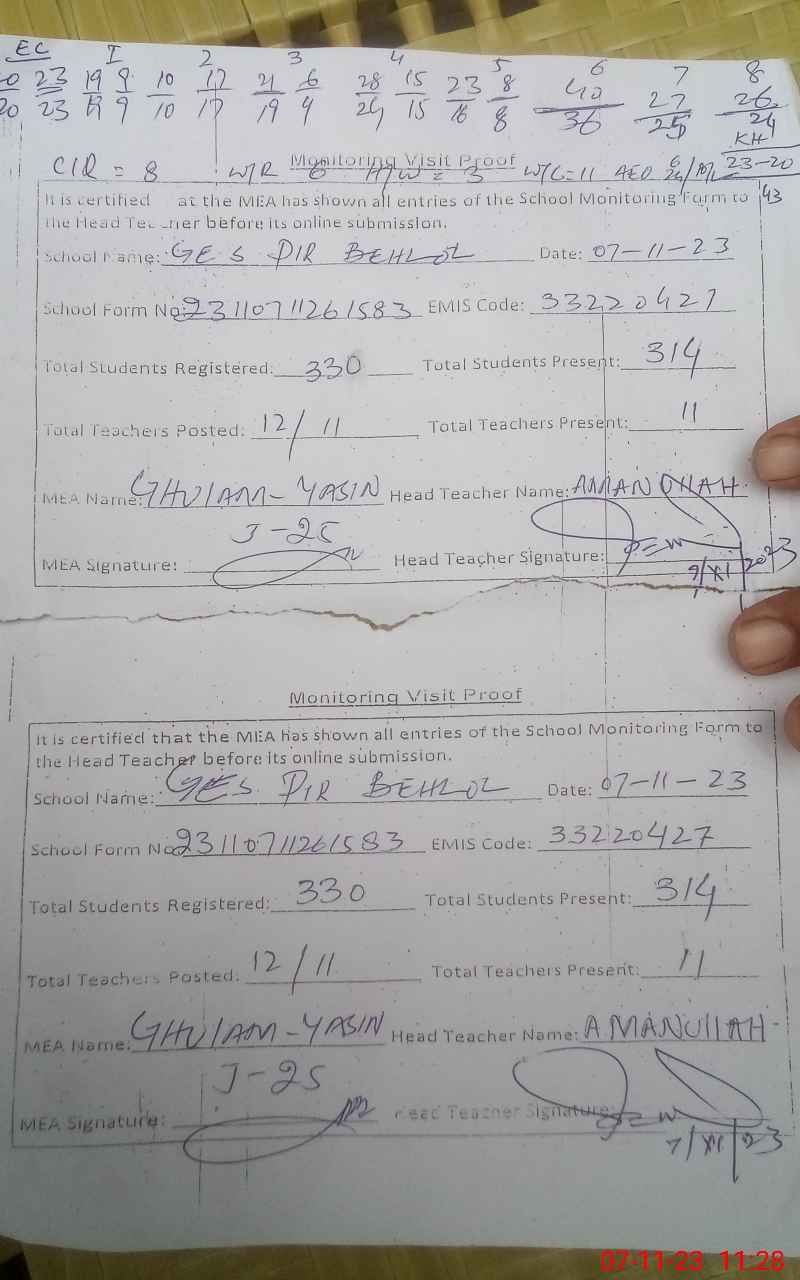 EC I 2 3 4 5 6 7 8
20 23 19 9 10 17 21 6 28 15 23 8 40 27 26
20 23 19 9 10 17 19 4 24 15 16 8 36 25 24
KH
CIR = 8 W/R 6 H/W = 3 W/C=11 AEO 23-20
Monitoring Visit Proof
It is certified at the MEA has shown all entries of the School Monitoring Form to 43
the Head Teacher before its online submission.
School Name: GES PIR BEHLOL Date: 07-11-23
School Form No: 23110711261583 EMIS Code: 33220427
Total Students Registered: 330 Total Students Present: 314
Total Teachers Posted: 12/11 Total Teachers Present: 11
MEA Name: GHULAM-YASIN Head Teacher Name: AMANULLAH
J-25
MEA Signature: Head Teacher Signature:
9/XI/2023
Monitoring Visit Proof
It is certified that the MEA has shown all entries of the School Monitoring Form to
the Head Teacher before its online submission.
School Name: GES PIR BEHLOL Date: 07-11-23
School Form No 23110711261583 EMIS Code: 33220427
Total Students Registered: 330 Total Students Present: 314
Total Teachers Posted: 12/11 Total Teachers Present: 11
MEA Name: GHULAM-YASIN Head Teacher Name: AMANULLAH
J-25
MEA Signature: Head Teacher Signature:
7/XI/23
07-11-23 11:28